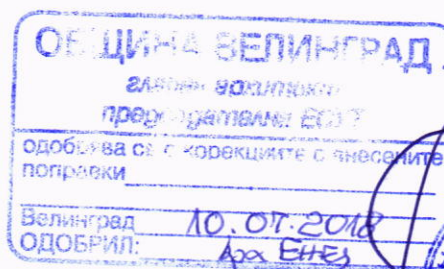 ОБЩИНА ВЕЛИНГРАД
главен архитект
председател на ЕСУТ
одобрява се с корекциите с внесените
поправки
Велинград 10.07.2018
ОДОБРИЛ: